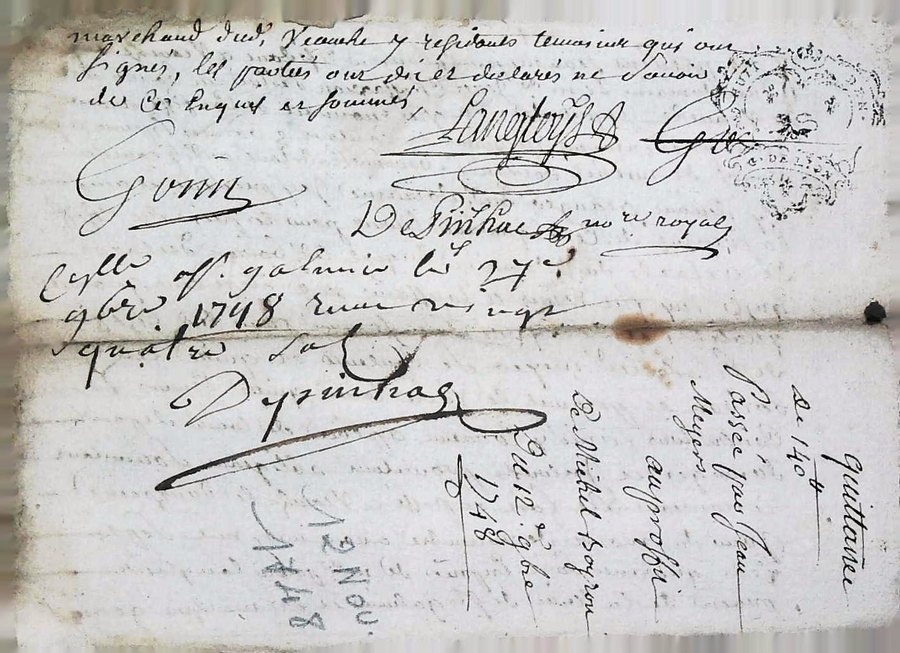 marchand dud. Veauche y residants temoins qui ont
signés, les parties ont dit et declarés ne savoir
de ce enquis et sommés,
Langloys
Gonin
DePinhac no.re royal
off. galmier le 27e
9bre 1748 reçu vingt
quatre sols
Depinhac
quittance
de 140 #
Passé par Jean
Meyers
au proffit
De Michel Boyron
Du 12e 9bre
1748
12 Nov.
1748
G. DE LYON